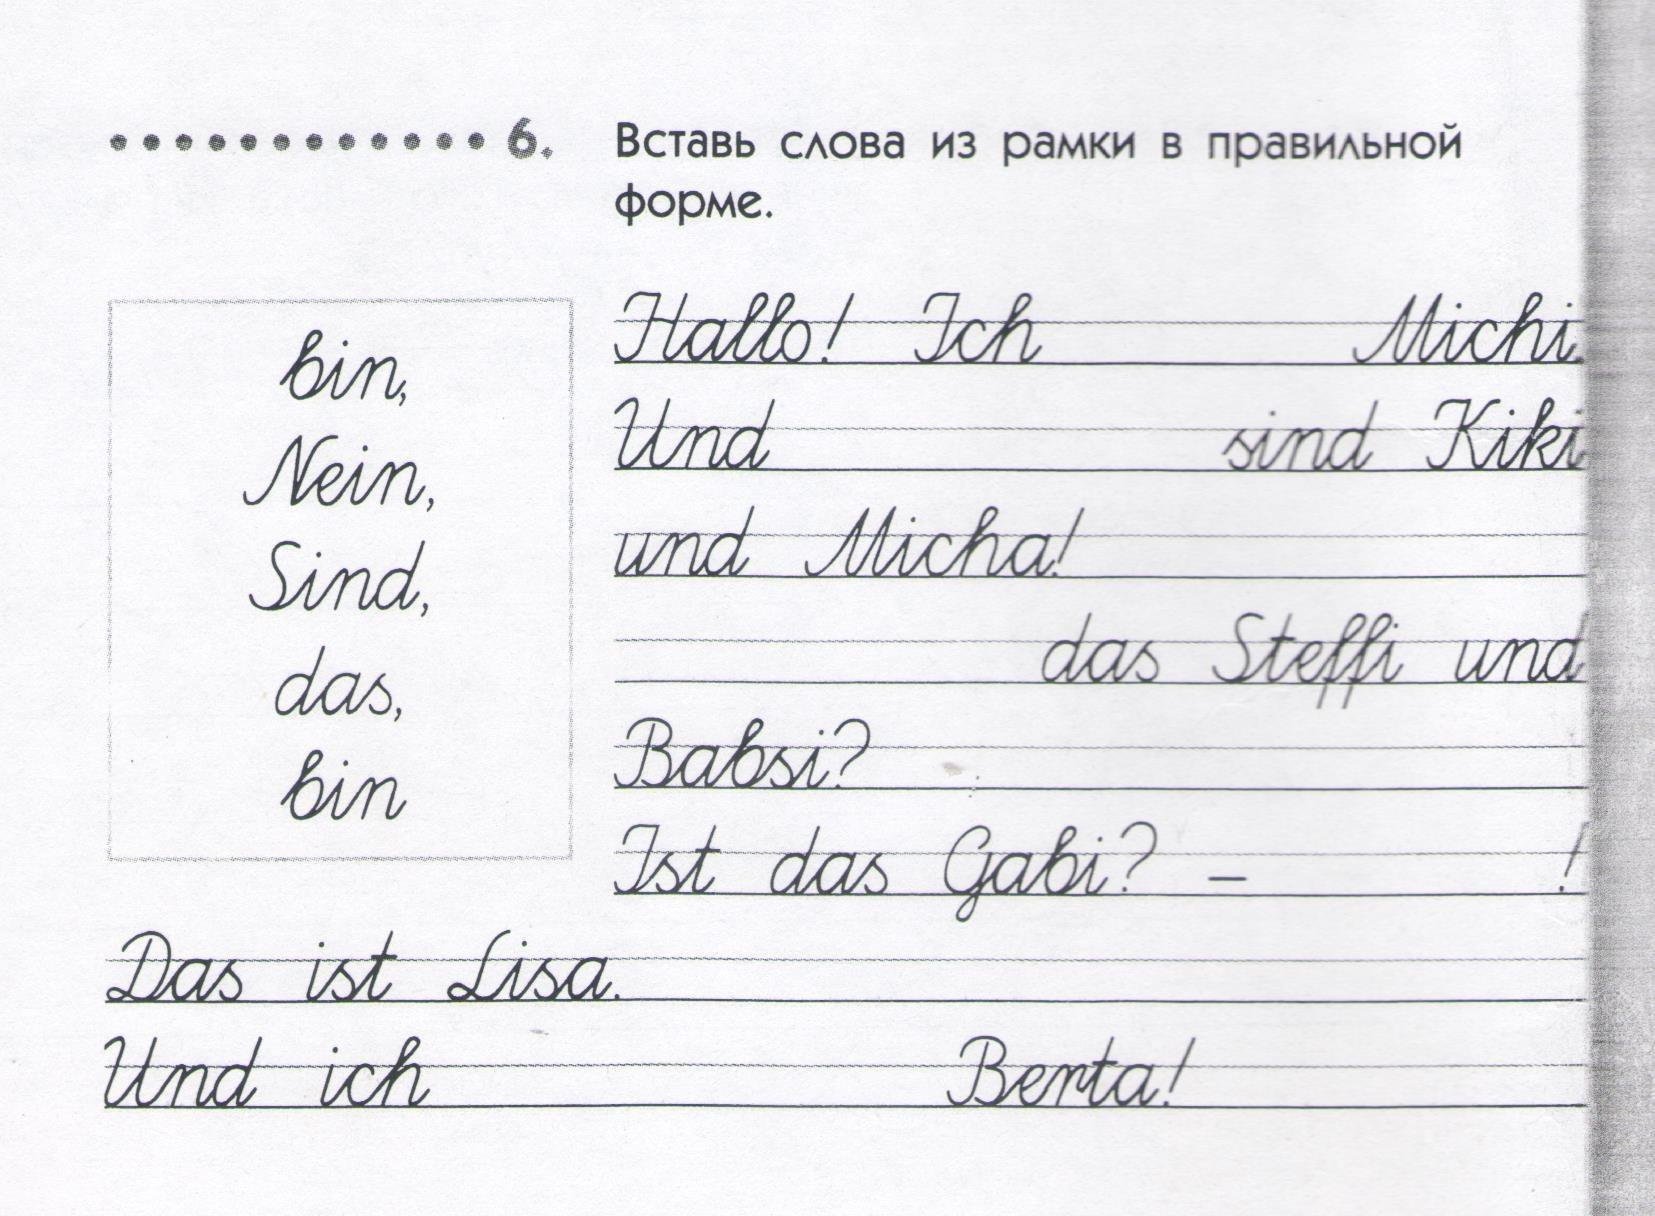 6. Вставь слова из рамки в правильной
форме.
bin,
Nein,
Sind,
das,
bin
Hallo! Ich Michi.
Und sind Kiki
und Micha!
das Steffi und
Babsi?
Ist das Gabi? – !
Das ist Lisa.
Und ich Berta!